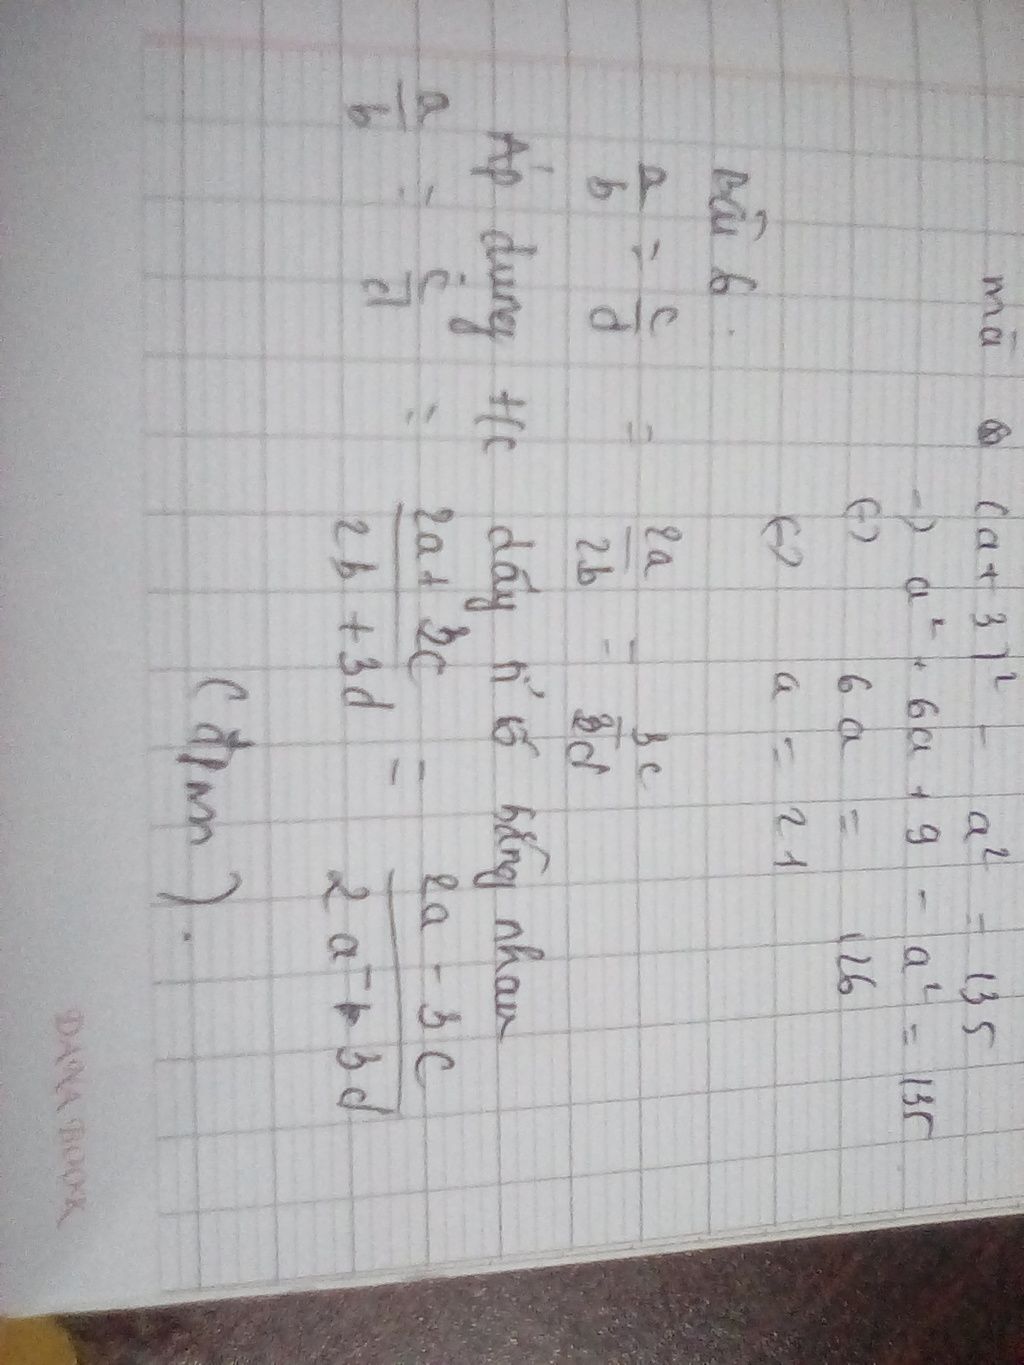 mà (a + 3)² - a² = 135
-) a² + 6a + 9 - a² = 135
(-) 6a = 126
(-) a = 21
Bài 6.
a/b = c/d = 2a/2b = 3c/3d
Áp dụng t/c dãy tỉ số bằng nhau
a/b = c/d = 2a + 3c/2b + 3d = 2a - 3c/2a - 3d
(đpcm).
DANA BOOK